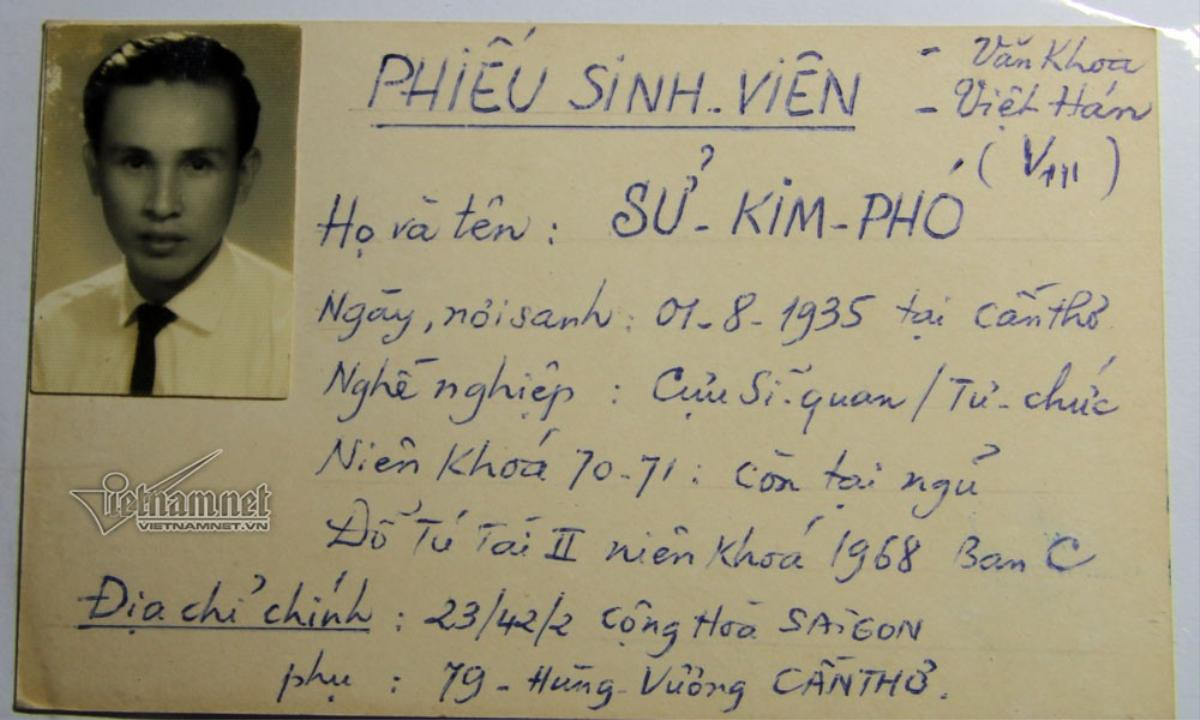 PHIẾU SINH-VIÊN
- Văn Khoa
- Việt Hán
( VIII )
Họ và tên : SỬ-KIM-PHÓ
Ngày, nơi sanh : 01-8-1935 tại Cần thơ
Nghề nghiệp : Cựu Sĩ-quan / Tư-chức
Niên Khoá 70-71 : Còn tại ngủ
Đổ Tú Tài II niên khoá 1968 Ban C
Địa chỉ chính : 23/42/2 Cộng Hoà SAIGON
phụ : 79-Hùng-Vương CẦNTHƠ.
vietnamnet
VIETNAMNET.VN